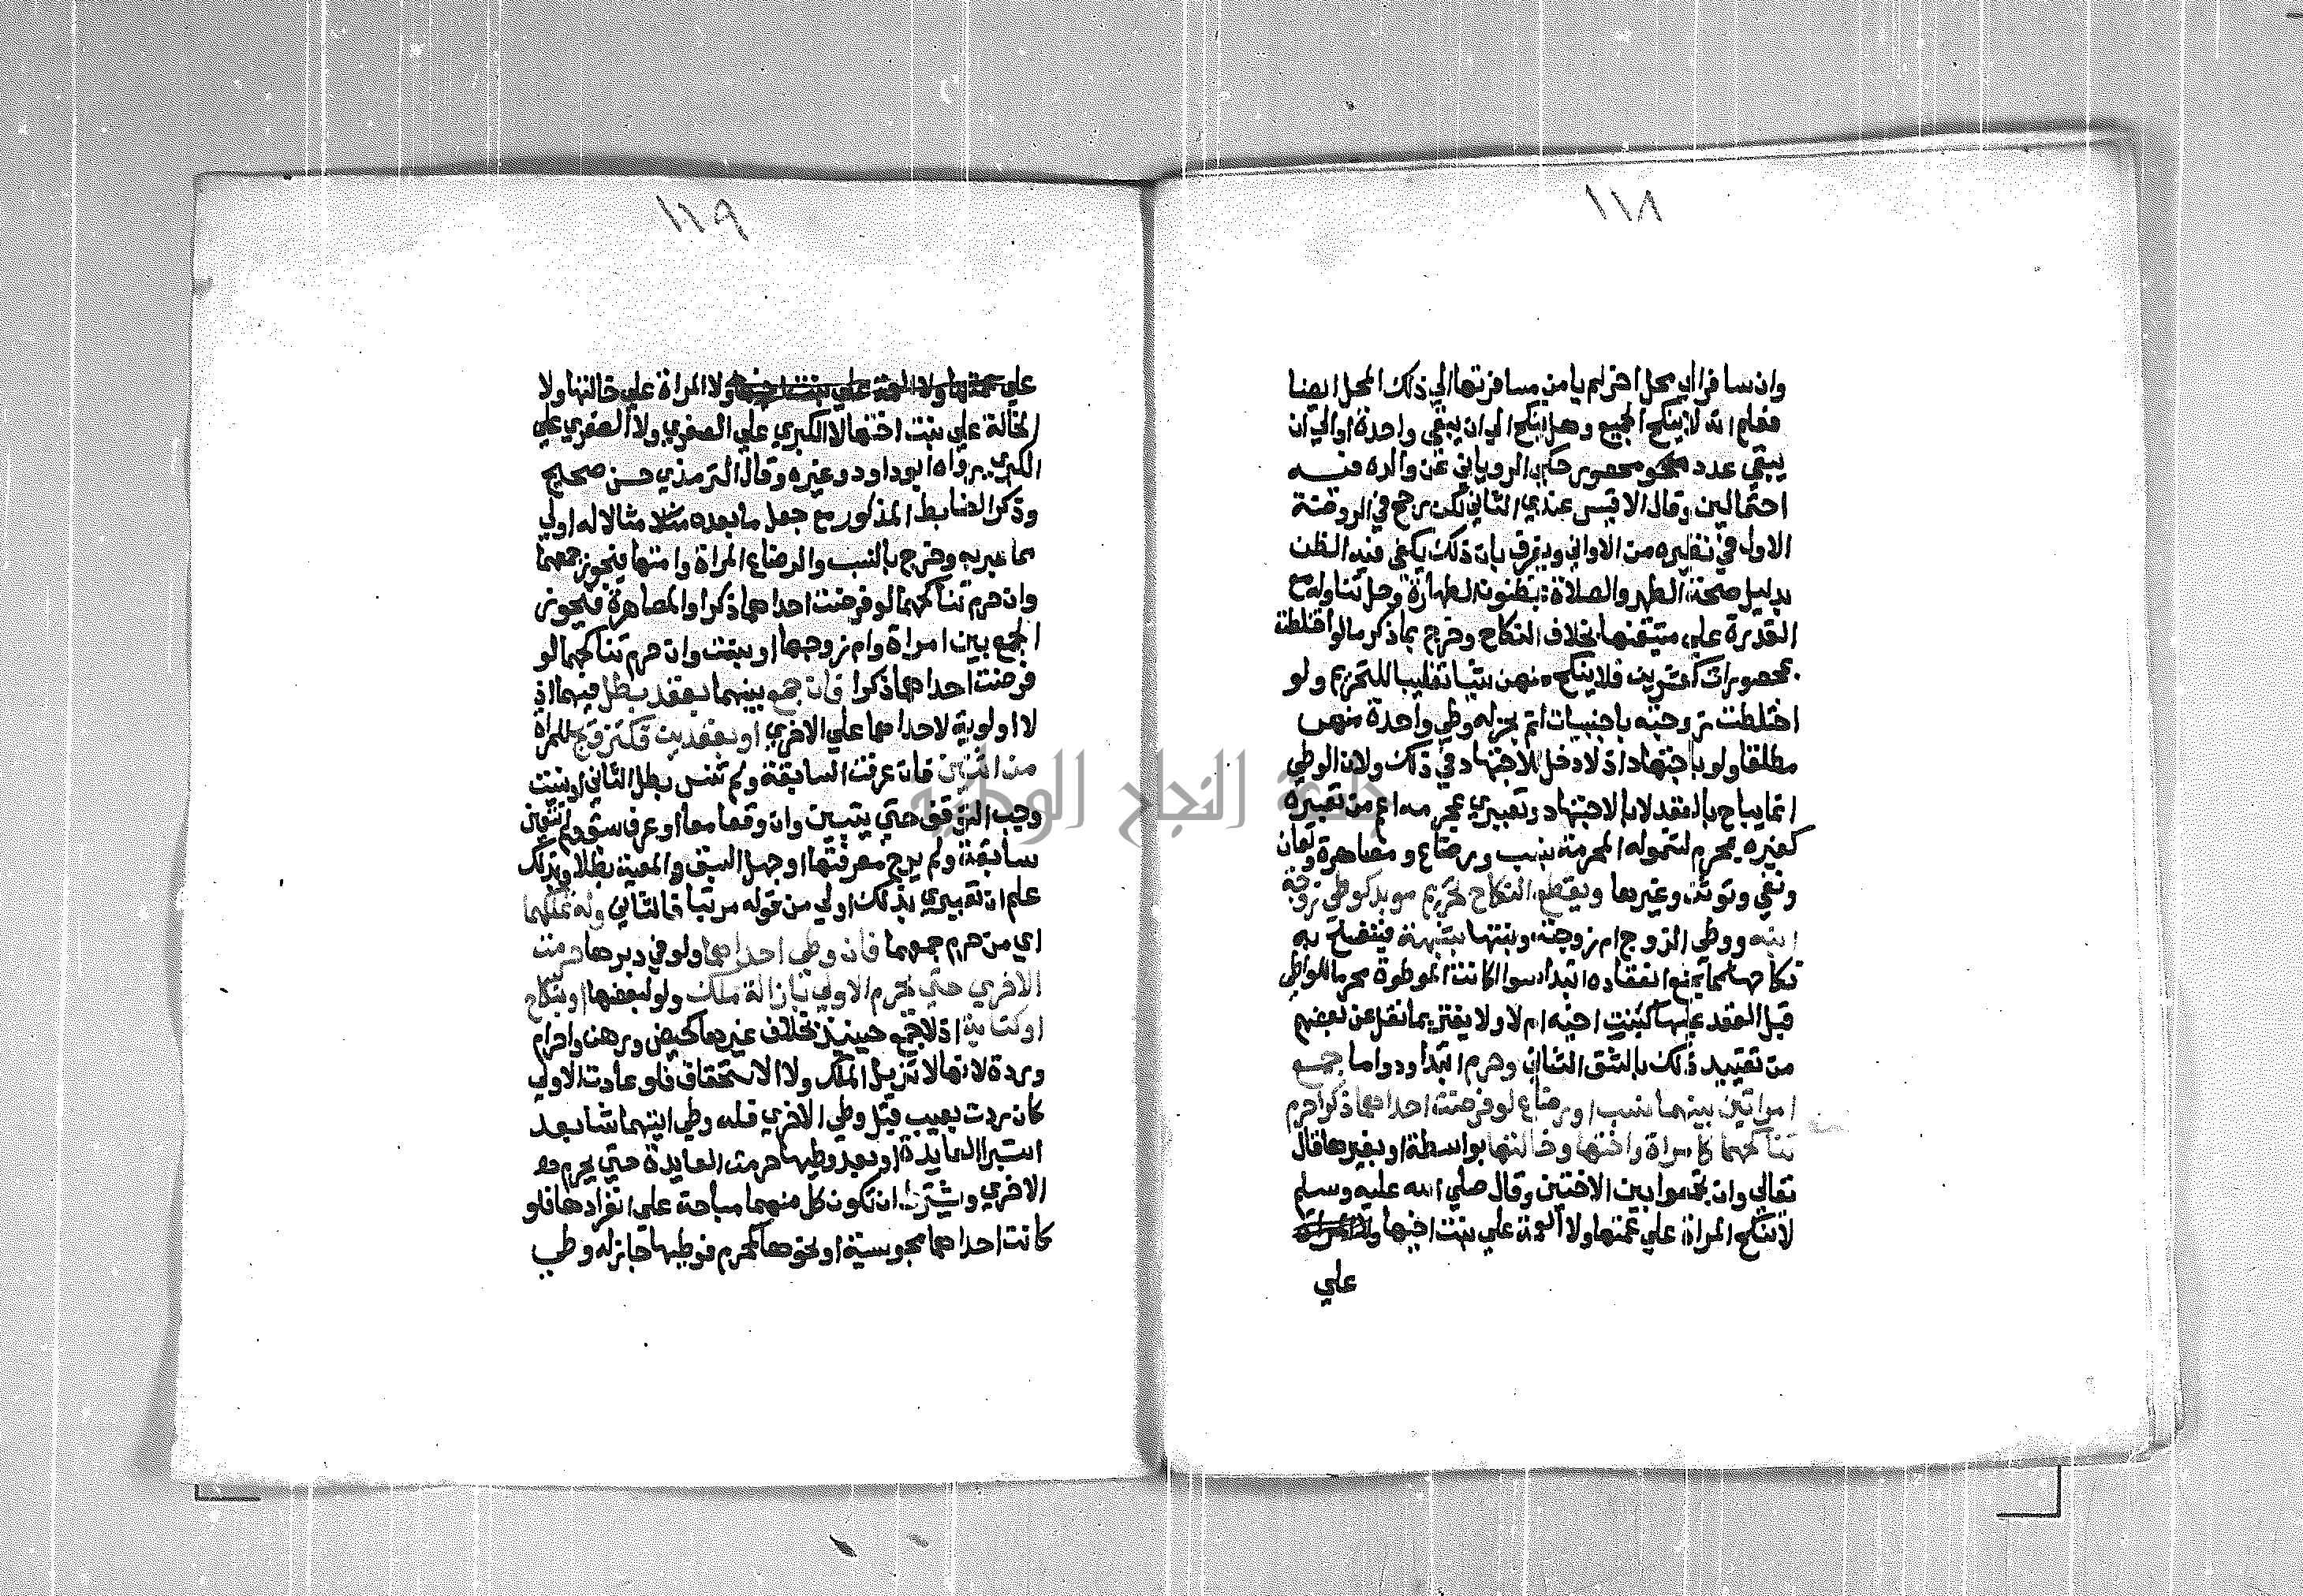 ١١٨
وان سافر الي محل اخر لم يامن مسافرتها الي ذلك المحل ايضا
فعلم انه لا ينكح الجميع وهل ينكح الي ان يبقي واحدة او الي ان
يبقي عدد محصور حكي الروياني عن والده فيه
احتمالين وقال الاقيس عندي الثاني لكن رجح في الروضة
الاول في نظيره من الاواني ويفرق بان ذلك يكفي فيه الظن
بدليل صحة الطهر والصلاة بمظنون الطهارة وحل تناوله مع
القدرة علي متيقنها بخلاف النكاح وخرج بما ذكر ما لو اختلطت
بمحصورات كعشرين فلا ينكح منهن شيا تغليبا للتحريم ولو
اختلطت زوجته باجنبيات لم يجز له وطي واحدة منهن
مطلقا ولو باجتهاد اذ لا دخل للاجتهاد في ذلك ولان الوطي
انما يباح بالعقد لا بالاجتهاد وتعبيري بمحرمه اعم من تعبيره
كغيره بمحرم لشموله المحرمة بنسب ورضاع ومصاهرة ولعان
ونفي وتوثن وغيرها ويقطع النكاح تحريم موبد كوطي زوجة
ابنه ووطي الزوج ام زوجته وبنتها بشبهة فينفسخ به
نكاحها كما يمنع انعقاده ابتدا سوا كانت الموطوة محرما للواطي
قبل العقد عليها كبنت اخيه ام لا ولا يغتر بما نقل عن بعضهم
من تقييد ذلك بالشق الثاني وحرم ابتدا ودواما جمع
امراتين بينهما نسب او رضاع لو فرضت احداهما ذكرا حرم
تناكحهما كامراة واختها وخالتها بواسطة او بغيرها قال
تعالي وان تجمعوا بين الاختين وقال صلي الله عليه وسلم
لا تنكح المراة علي عمتها ولا العمة علي بنت اخيها ولا المراة
علي
١١٩
علي عمتها ولا العمة علي بنت اخيها ولا المراة علي خالتها ولا
الخالة علي بنت اختها لا الكبري علي الصغري ولا الصغري علي
الكبري رواه ابو داود وغيره وقال الترمذي حسن صحيح
وذكر الضابط المذكور مع جعل ما بعده مثالا له اولي
مما عبر به وخرج بالنسب والرضاع المراة وامتها فيجوز جمعهما
وان حرم تناكحهما لو فرضت احداهما ذكرا والمصاهرة فيجوز
الجمع بين امراة وام زوجها او بنت وان حرم تناكحهما لو
فرضت احداهما ذكرا فان جمع بينهما بعقد بطل فيهما اذ
لا اولوية لاحداهما علي الاخري او بعقدين فكتزوج للمراة
من اثنين فان عرفت السابقة ولم تنس بطل الثاني او نسيت
وجب التوقف حتي يتبين وان وقعا معا او عرف سبق ولم تتعين
سابقة ولم يرج معرفتها او جهل السبق والمعية بطلا وبذلك
علم ان تعبيري بذلك اولي من قوله مرتبا فالثاني وله تملكهما
اي من حرم جمعهما فان وطي احداهما ولو في دبرها حرمت
الاخري حتي يحرم الاولي بازالة ملك ولو لبعضها او بنكاح
او كتابة اذ لا جمع حينيذ بخلاف غيرها كحيض ورهن واحرام
وردة لانها لا تزيل الملك ولا الاستحقاق فلو عادت الاولي
كان ردت بعيب قبل وطي الاخري فله وطي ايتهما شا بعد
استبرا العايدة او بعد وطيها حرمت العايدة حتي يحرم
الاخري ويشترط ان تكون كل منهما مباحة علي انفرادها فلو
كانت احداهما مجوسية او نحوها كمحرم فوطيها جاز له وطي